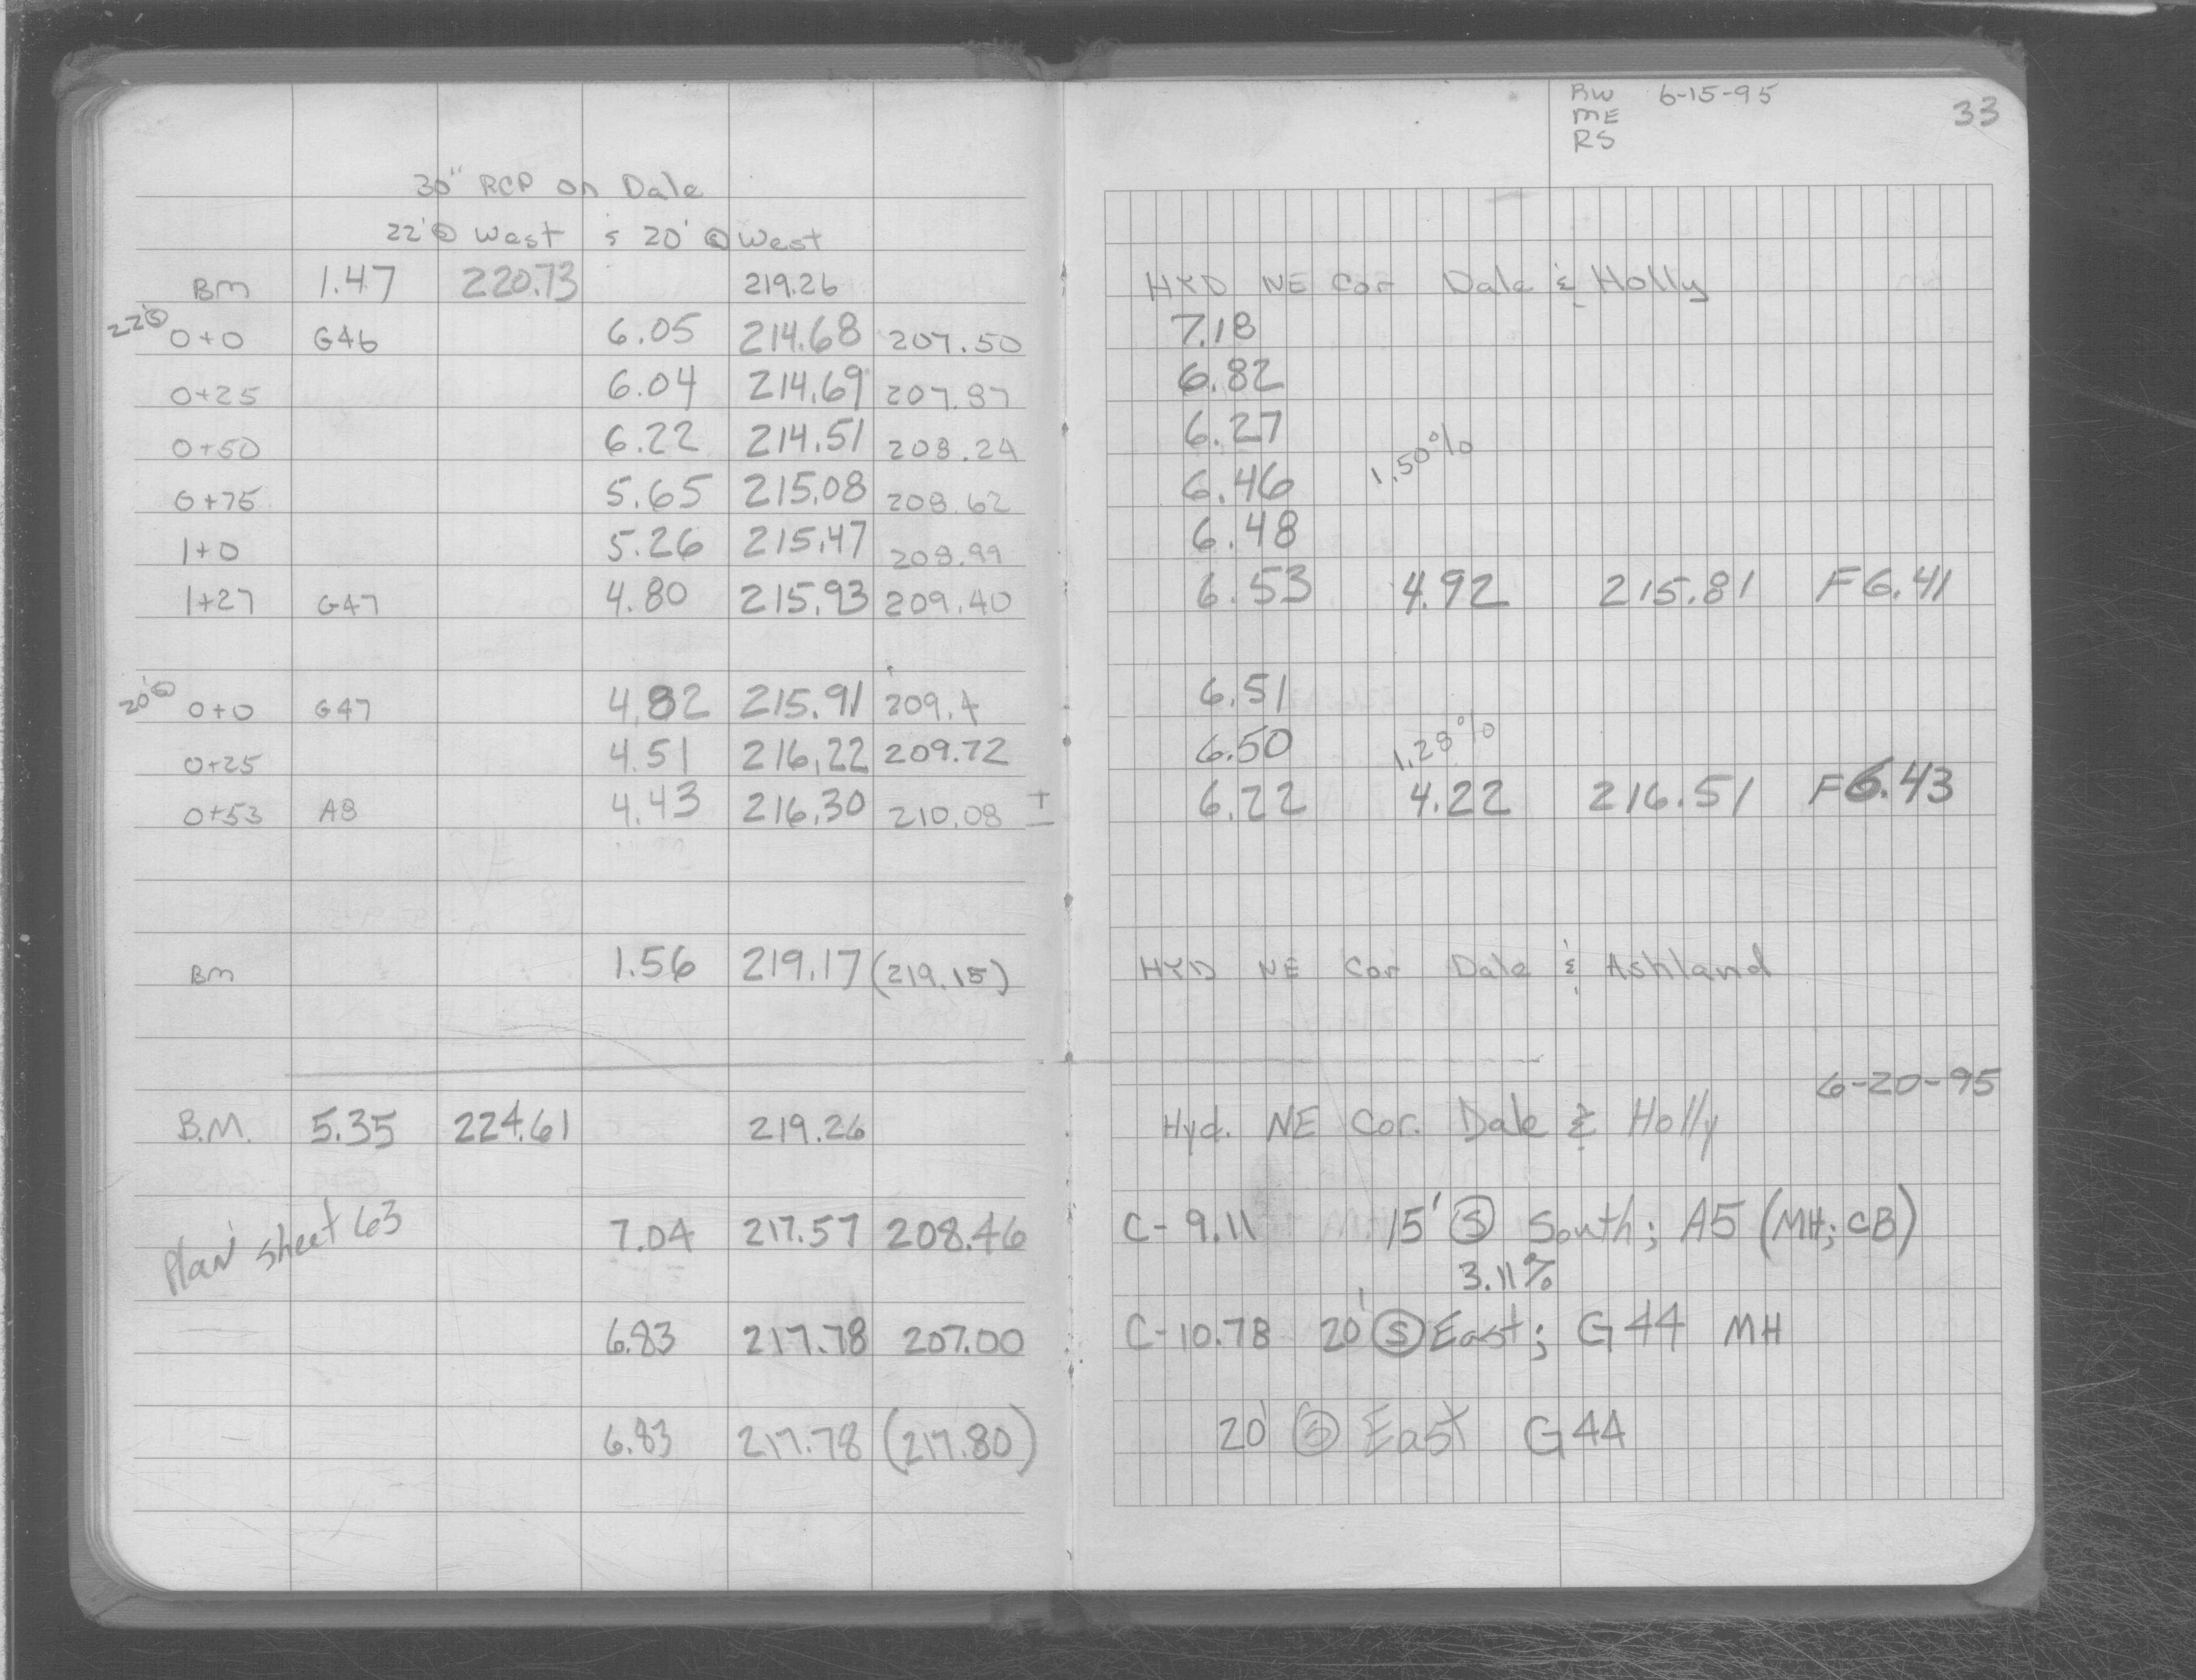 BW 6-15-95 33
ME
RS
30" RCP on Dale
22' Ⓢ West & 20' Ⓢ West
BM 1.47 220.73 219.26 HYD NE Cor Dale & Holly
22'Ⓢ 0+0 G46 6.05 214.68 207.50 7.18
0+25 6.04 214.69 207.87 6.82
0+50 6.22 214.51 208.24 6.27 1.50%
0+75 5.65 215.08 208.62 6.46
1+0 5.26 215.47 208.99 6.48
1+27 G47 4.80 215.93 209.40 6.53 4.92 215.81 F6.41
20'Ⓢ 0+0 G47 4.82 215.91 209.4 6.51
0+25 4.51 216.22 209.72 6.50 1.28%
0+53 A8 4.43 216.30 210.08 ± 6.22 4.22 216.51 F6.43
BM 1.56 219.17 (219.15) HYD NE Cor Dale & Ashland
6-20-95
B.M. 5.35 224.61 219.26 Hyd. NE Cor. Dale & Holly
Plan sheet 63 7.04 217.57 208.46 C-9.11 15' Ⓢ South; A5 (MH; CB)
3.11%
6.83 217.78 207.00 C-10.78 20' Ⓢ East; G44 MH
6.83 217.78 (217.80) 20' Ⓢ East G44